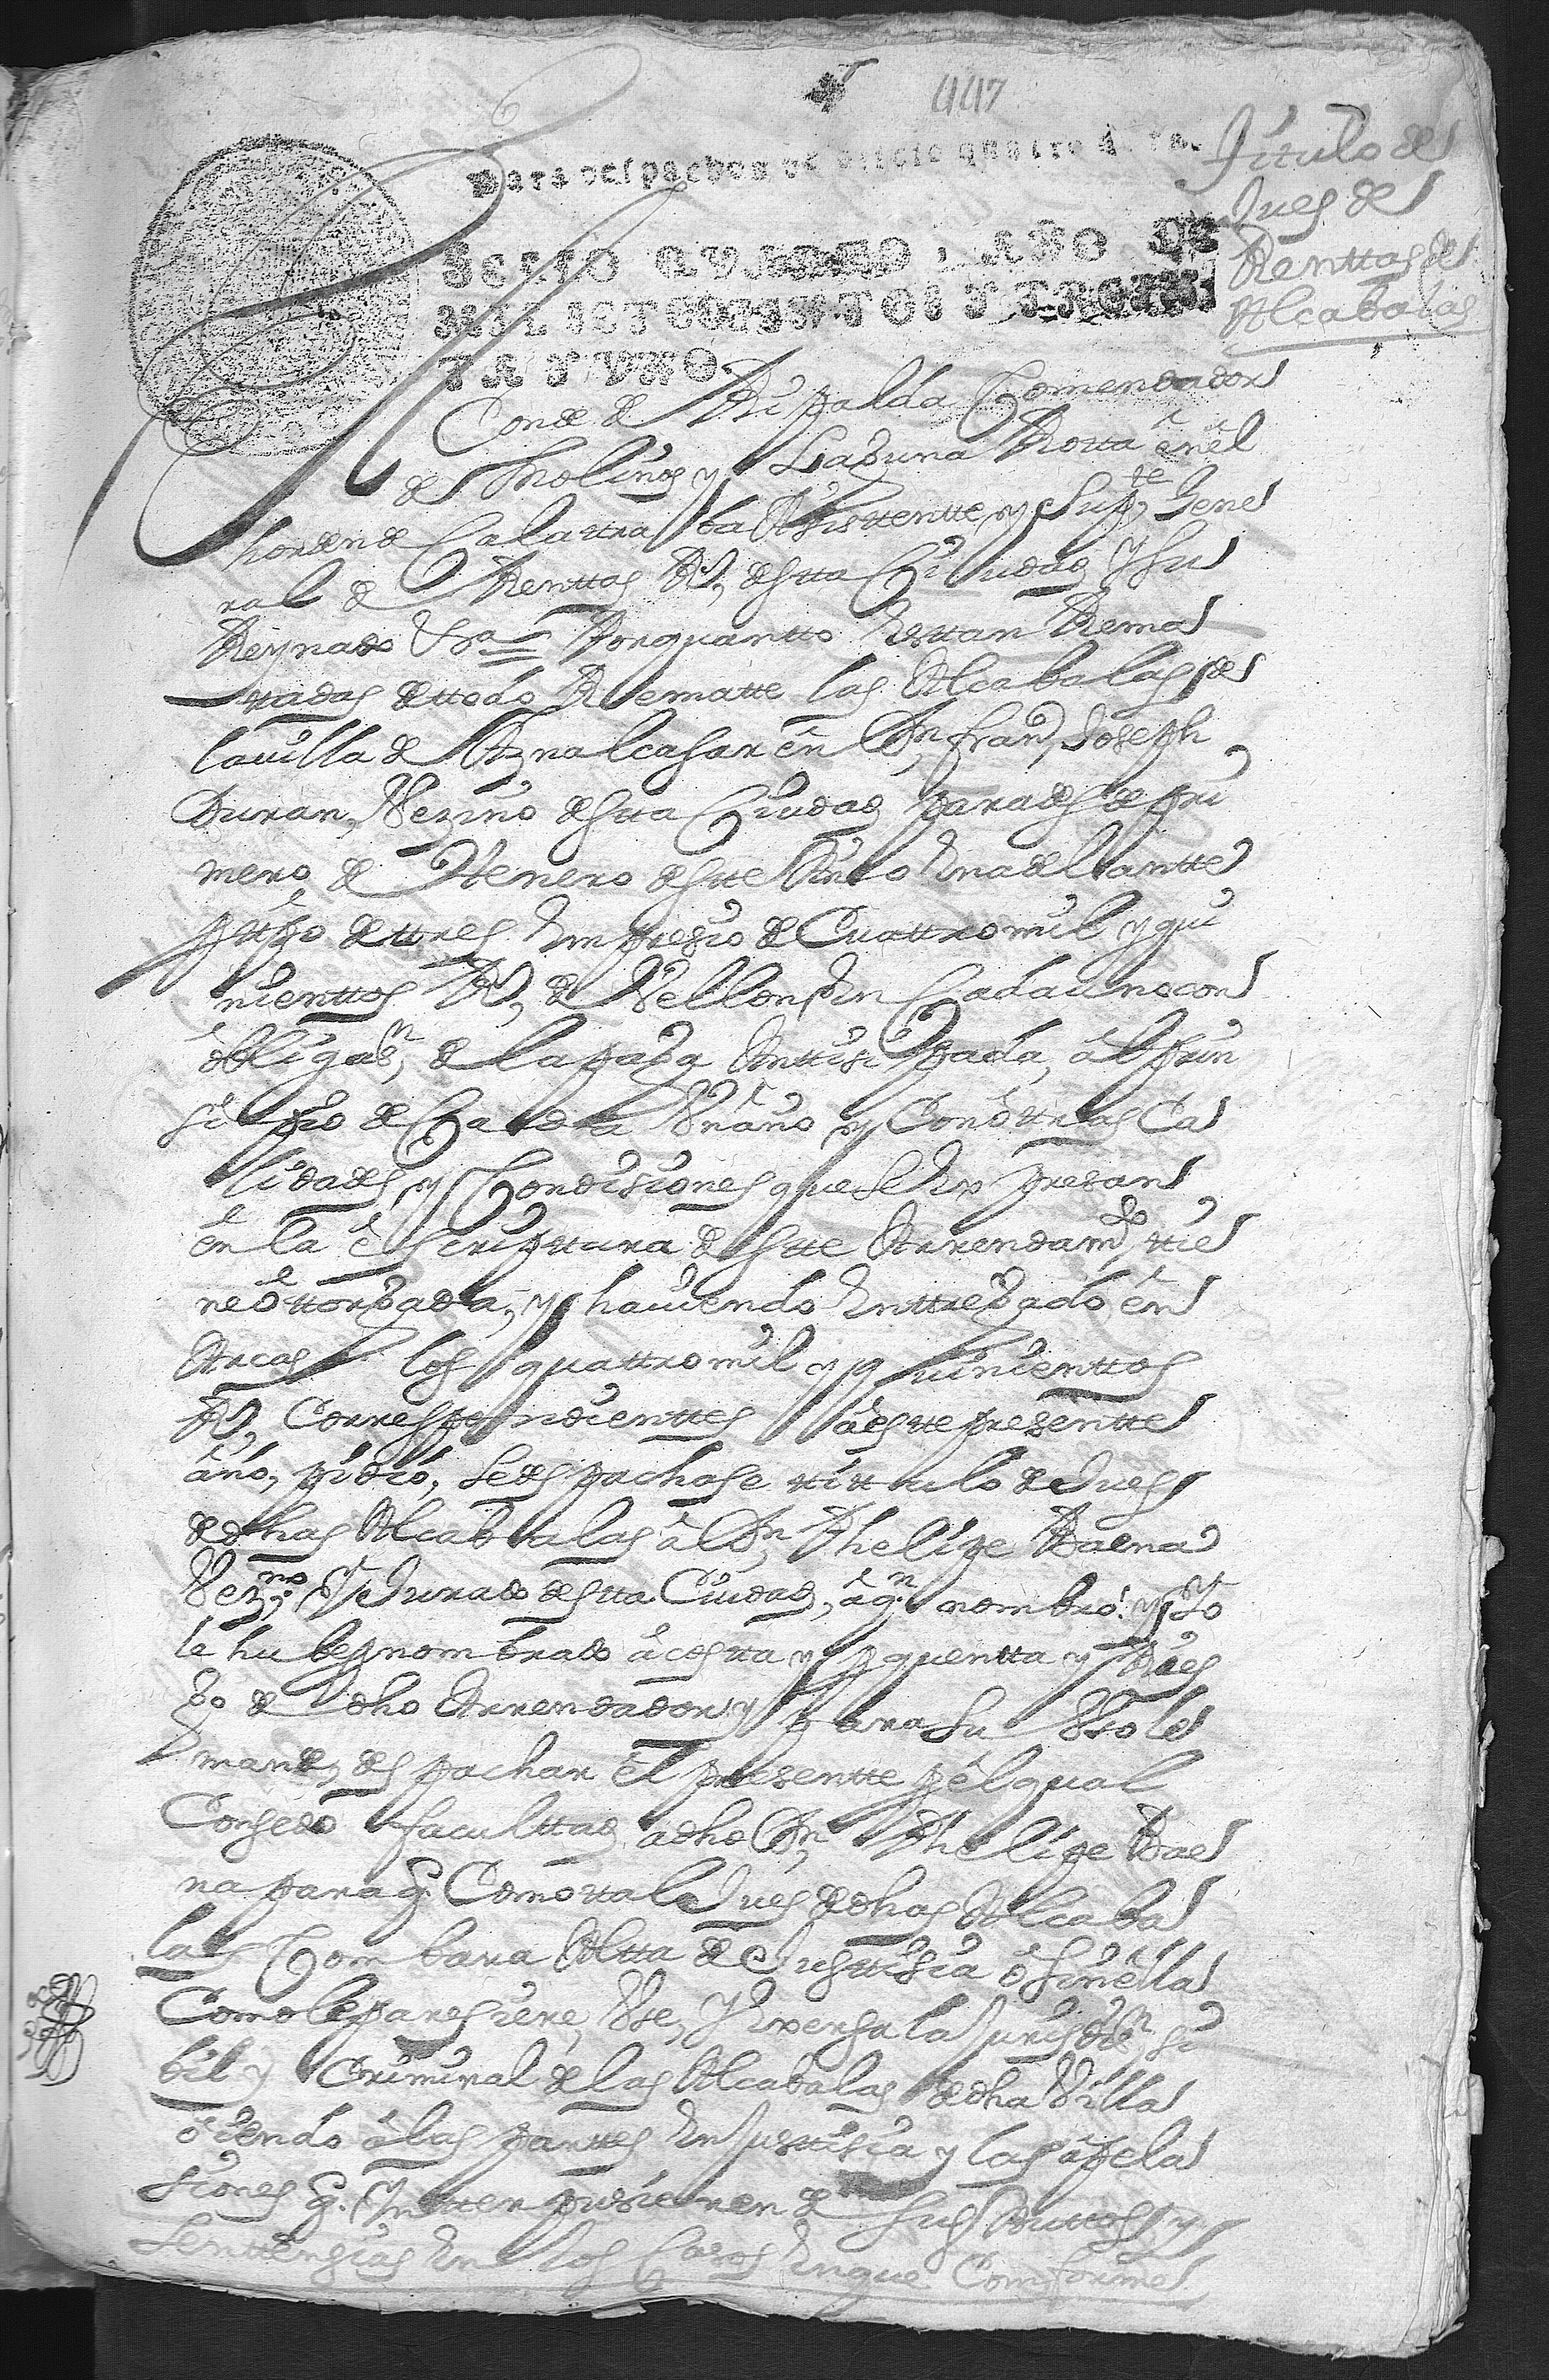 447
Para despachos de oficio quatro mrs.
Titulo de
Jues de
Renttas de
Alcabalas
SELLO QVARTO, AÑO DE
MIL SETECIENTOS Y TREIN
TA Y VNO.
Conde de Ripalda Comendador
de Molinos y Laguna Rotta en el
horden de Calattraba Asisttentte, y Supte Gene
ral de Renttas Rs, destta Ciudad y su
Reynado &ra = Porquantto esttan Rema
tadas de ttodo Rematte las Alcabalas de
la villa de Aznalcasar en Dn Franco Joseph
Duran, Vezino destta Ciudad para desde pri
mero de Henero destte Año en adelantte
pr ttpo de ttres en presio de Cuattro mil y qui
nienttos Rs, de Vellon en Cada uno con
obligasn, de la paga Anttisipada, al prin
sipio de Cada Un año y Con ottras Ca
lidades y Condisiones que se expresan
en la escripttura destte Arrendamto, ttie
ne ottorgada, y haviendo enttregado en
Arcas los quattro mil y quinienttos
Rs, Correspondienttes a estte presentte
año, pidio, se despachase tittulo de Jues
de dhas Alcabalas a Dn Phelipe Baena
Vezno, y Jurado destta Ciudad, a qn nombro, y Yo
le hube pr nombrado a costta y pr quentta y Ries
go de dho Arrendador y para su Uso le
mande, despachar el presentte pr el qual
Consedo faculttad a dho Dn, Phelipe Bae
na para q. Como ttal Jues de dhas Alcaba
las Con bara Altta de Justtisia o sin ella
Como le paresiere, Use, y exersa la Jurisdin, si
bil y Criminal de las Alcabalas de dha Villa
oiendo a las parttes en Justtisia y las apela
siones q. Intterpusieren de sus Auttos y
Senttensias en los Casos en que Conforme